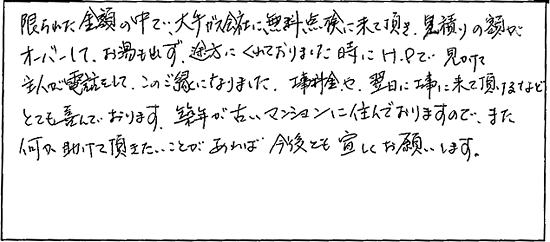 限られた金額の中で、大手ガス会社に無料点検に来て頂き、見積りの額が
オーバーして、お湯も出ず、途方にくれておりました時にH.Pで見つけて
主人が電話をして、このご縁になりました。工事料金や、翌日に工事に来て頂けるなど
とても喜んでおります。築年が古いマンションに住んでおりますので、また
何か助けて頂きたいことがあれば今後とも宜しくお願いします。